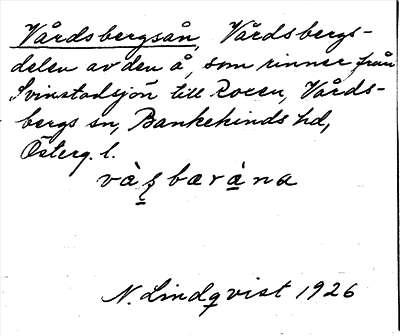 Vårdsbergsån, Vårdsbergs-
delen av den å, som rinner från
Svinstadsjön till Roxen, Vårds-
bergs sn, Bankekinds hd,
Österg. l.
N. Lindqvist 1926